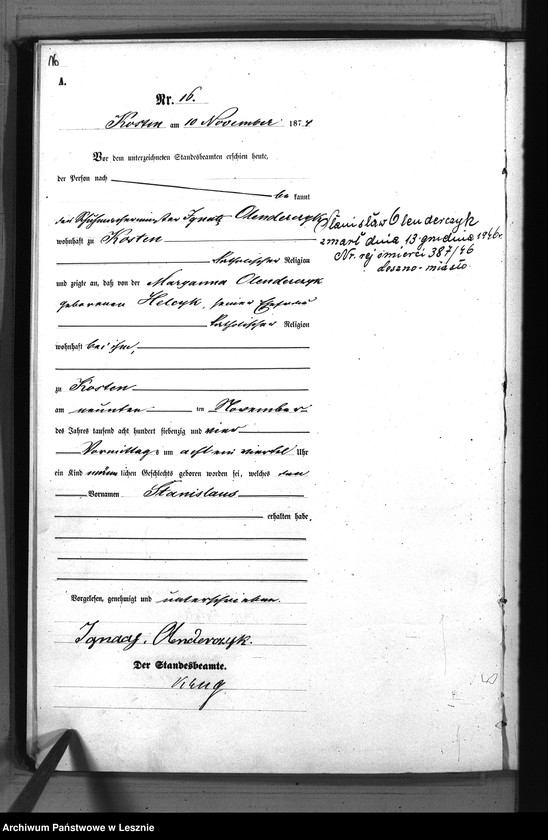 16
A.
Nr. 16.
Kosten am 10 November 1874
Vor dem unterzeichneten Standesbeamten erschien heute,
der Person nach
be kannt
der Schuhmachermeister Ignatz Olenderczyk
wohnhaft zu Kosten
katholischer Religion
und zeigte an, daß von der Maryanna Olenderczyk
geborenen Helcyk, seiner Ehefrau
katholischer Religion
wohnhaft bei ihm,
zu Kosten
am neunten ten November
des Jahres tausend acht hundert siebenzig und vier
Vormittag s um acht ein viertel Uhr
ein Kind männ lichen Geschlechts geboren worden sei, welches den
Vornamen Stanislaus
erhalten habe.
Vorgelesen, genehmigt und unterschrieben.
Ignacy Olenderczyk.
Der Standesbeamte.
Krug
Stanisław Olenderczyk
zmarł dnia 13 grudnia 1946 r.
Nr. rej śmierci 387/46
Leszno-miasto.
Archiwum Państwowe w Lesznie